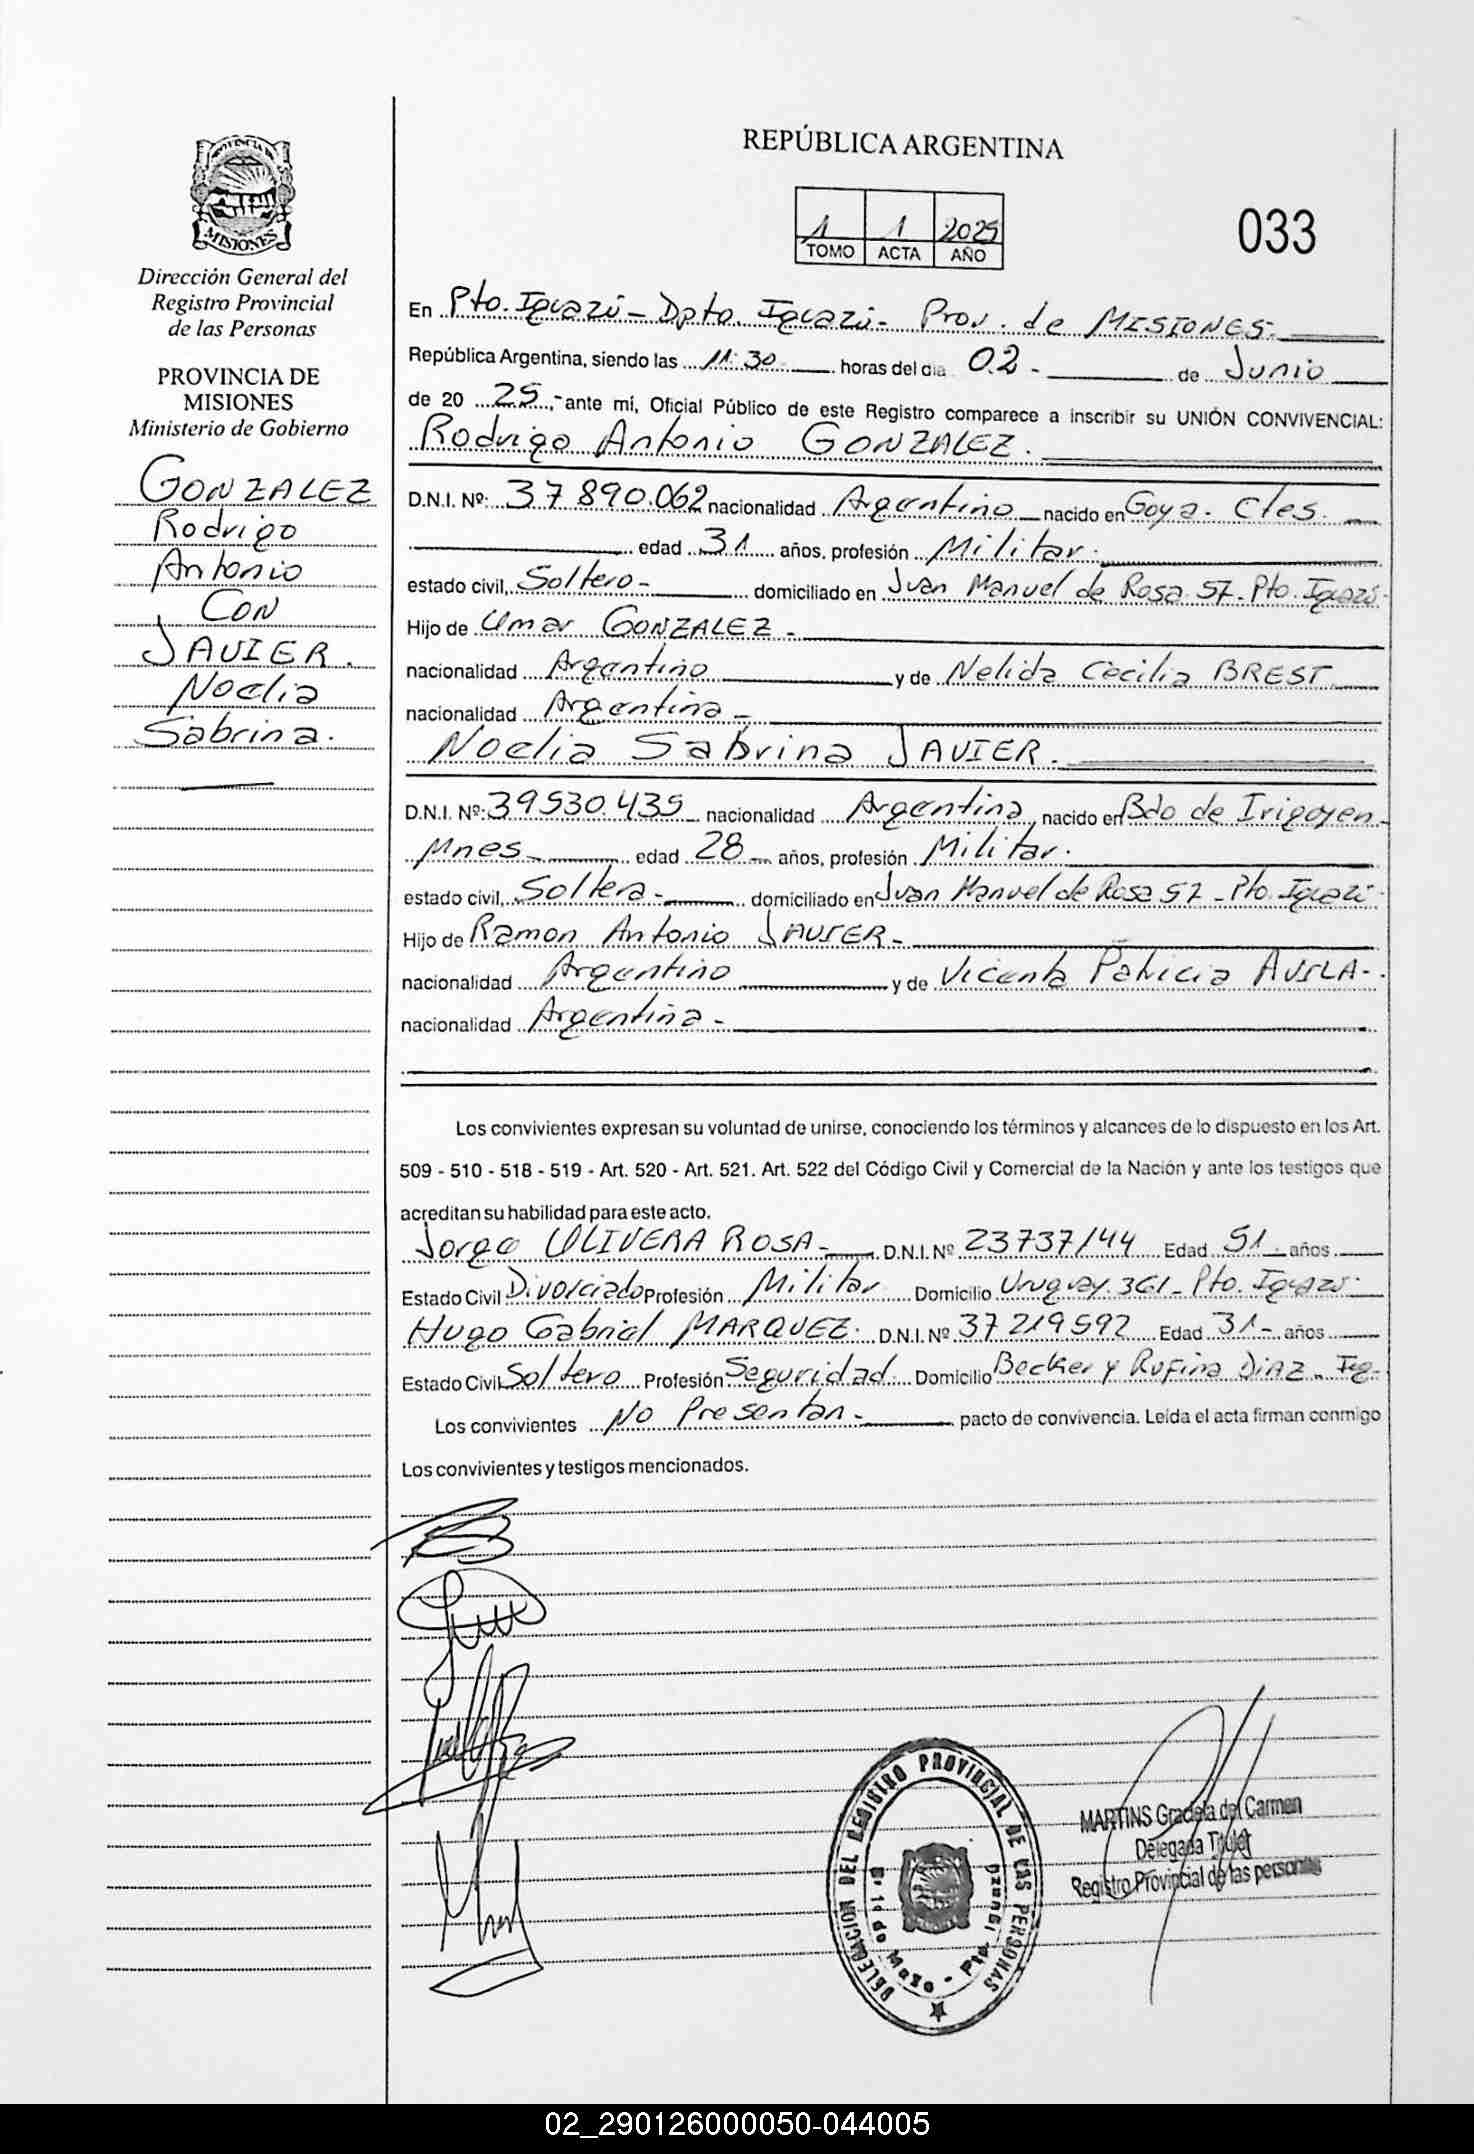 PROVINCIA DE
MISIONES
Dirección General del
Registro Provincial
de las Personas
PROVINCIA DE
MISIONES
Ministerio de Gobierno
GONZALEZ
Rodrigo
Antonio
CON
JAVIER.
Noelia
Sabrina.
REPÚBLICA ARGENTINA
1 1 2025
TOMO ACTA AÑO
033
En Pto. Iguazú - Dpto. Iguazú - Prov. de MISIONES.
República Argentina, siendo las 11:30 horas del día 02 - de Junio
de 20 25,- ante mí, Oficial Público de este Registro comparece a inscribir su UNIÓN CONVIVENCIAL:
Rodrigo Antonio GONZALEZ.
D.N.I. Nº: 37.890.062 nacionalidad Argentino nacido en Goya. Ctes.
edad 31 años, profesión Militar.
estado civil, Soltero - domiciliado en Juan Manuel de Rosa 57 - Pto. Iguazú.
Hijo de Omar GONZALEZ -
nacionalidad Argentino y de Nelida Cecilia BREST
nacionalidad Argentina -
Noelia Sabrina JAVIER.
D.N.I. Nº: 39530.435 nacionalidad Argentina, nacido en Bdo de Irigoyen -
Mnes edad 28 años, profesión Militar.
estado civil, Soltera - domiciliado en Juan Manuel de Rosa 57 - Pto. Iguazú.
Hijo de Ramon Antonio JAVIER -
nacionalidad Argentino y de Vicenta Patricia AVILA -
nacionalidad Argentina -
Los convivientes expresan su voluntad de unirse, conociendo los términos y alcances de lo dispuesto en los Art.
509 - 510 - 518 - 519 - Art. 520 - Art. 521. Art. 522 del Código Civil y Comercial de la Nación y ante los testigos que
acreditan su habilidad para este acto.
Jorge OLIVERA ROSA - D.N.I. Nº 23737144 Edad 51 años.
Estado Civil Divorciado Profesión Militar Domicilio Uruguay 361 - Pto. Iguazú.
Hugo Gabriel MARQUEZ. D.N.I. Nº 37219592 Edad 31 - años
Estado Civil Soltero Profesión Seguridad. Domicilio Becker y Rufina DIAZ - Ig -
Los convivientes No Presentan - pacto de convivencia. Leída el acta firman conmigo
Los convivientes y testigos mencionados.
DELEGACION DEL REGISTRO PROVINCIAL DE LAS PERSONAS
Bº 1º de Mayo - Pto. Iguazú
MARTINS Graciela del Carmen
Delegada Titular
Registro Provincial de las personas
02_290126000050-044005